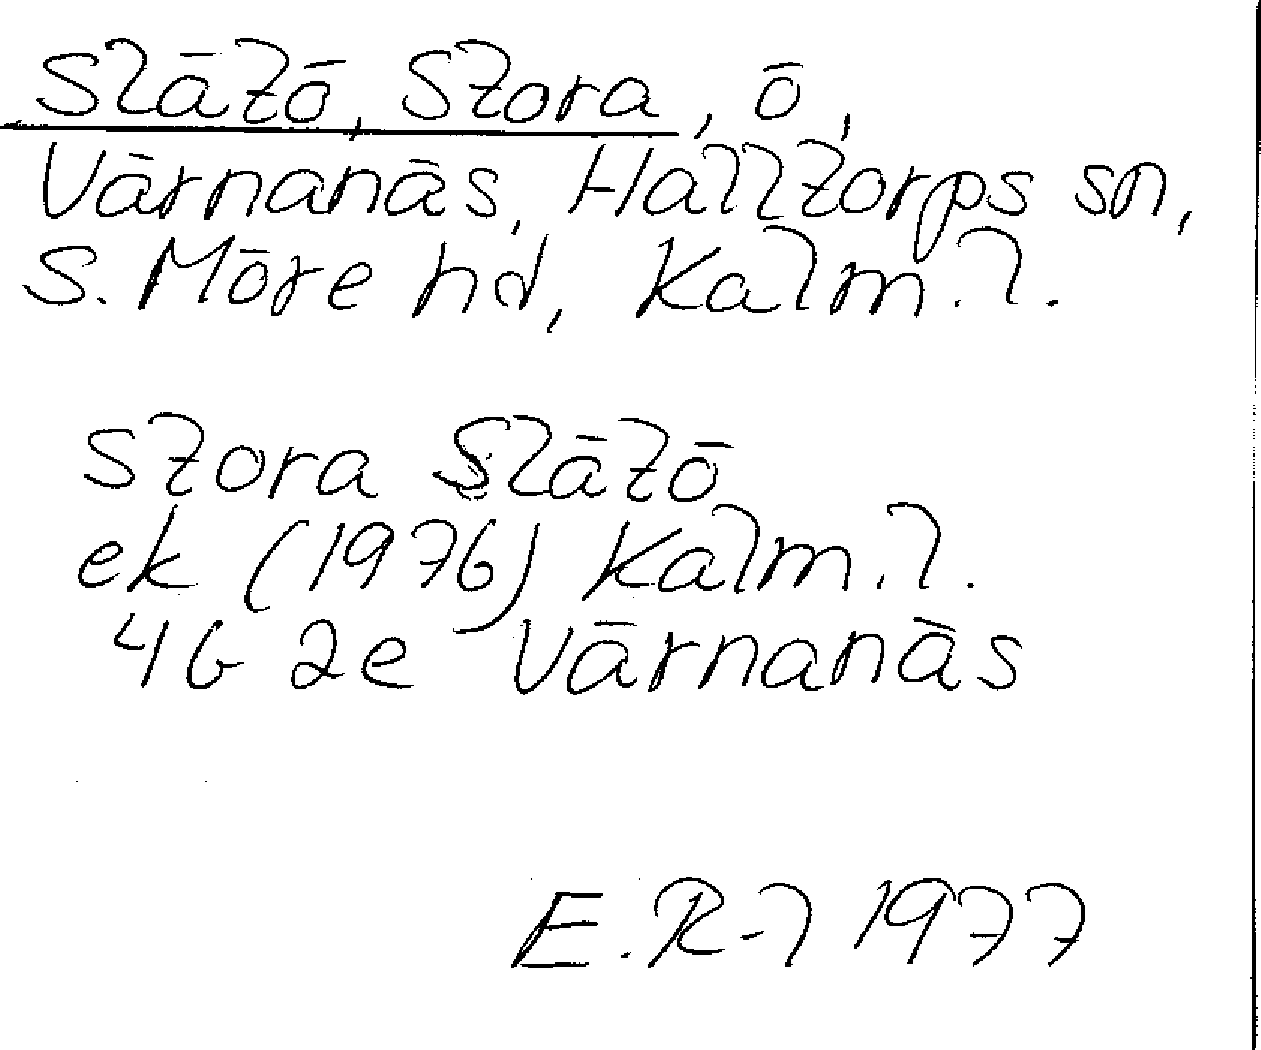 Slätö, Stora, ö,
Värnanäs, Halltorps sn,
S. Möre hd, Kalm. l.
Stora Slätö
ek (1976) Kalm. l.
4G 2e Värnanäs
E. R-l 1977